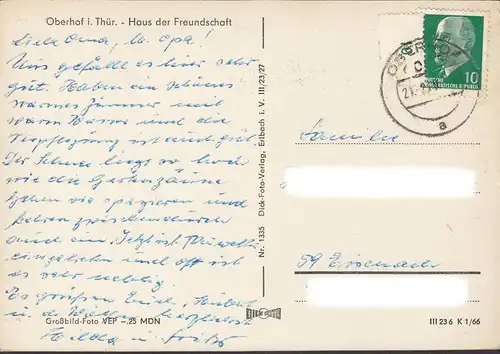 Oberhof i. Thür. - Haus der Freundschaft
Liebe Oma, u. Opa!
Uns gefällt es hier sehr
gut. Haben ein schönes
warmes Zimmer mit
warm Wasser und die
Verpflegung ist auch gut.
Der Schnee liegt so hoch
wie die Gartenzäune
Gehen viel spazieren und
kehren zwischendurch
auch ein. Jetzt ist
eingeblieben und oft ist
es sehr neblig.
Es grüßen Euch, Hubert
u. die herzlichst
Hilda u. Fritz
Großbild-Foto VEP -.25 MDN
Nr. 1335 Dick-Foto-Verlag, Erlbach i. V. III/23/27
DICK FOTO
OBERHOF
a
10
DEUTSCHE
DEMOKRATISCHE REPUBLIK
Familie
59 Eisenach
III 23 6 K 1/66